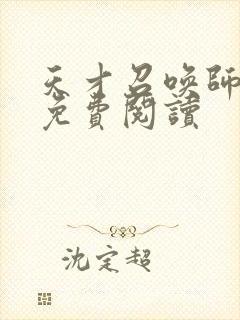 天才召喚師
免費閱讀
沈定超